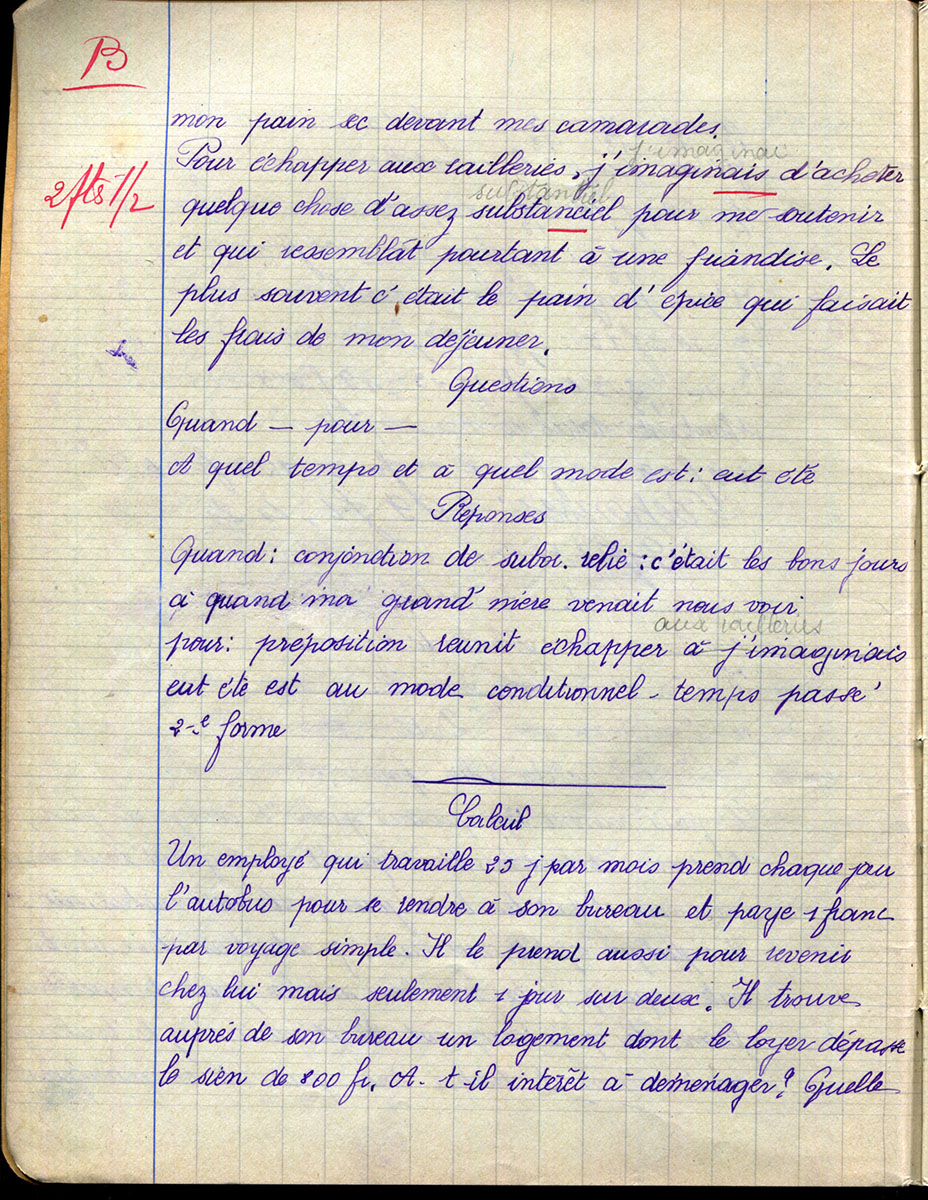 B
mon pain sec devant mes camarades.
j'imaginai
Pour échapper aux railleries, j'imaginais d'acheter
2 ftes 1/2
substantiel
quelque chose d'assez substanciel pour me soutenir
et qui ressemblât pourtant à une friandise. Le
plus souvent c'était le pain d'épice qui faisait
les frais de mon déjeuner.
Questions
Quand — pour —
A quel temps et à quel mode est : eut été
Réponses
Quand : conjonction de subor. relie : c'était les bons jours
à quand ma grand'mère venait nous voir
aux railleries
pour : préposition réunit échapper à j'imaginais
eut été est au mode conditionnel - temps passé
2e forme
Calcul
Un employé qui travaille 25 j par mois prend chaque jour
l'autobus pour se rendre à son bureau et paye 1 franc
par voyage simple. Il le prend aussi pour revenir
chez lui mais seulement 1 jour sur deux. Il trouve
auprés de son bureau un logement dont le loyer dépasse
le sien de 800 fr. A-t-il interêt à déménager ? Quelle